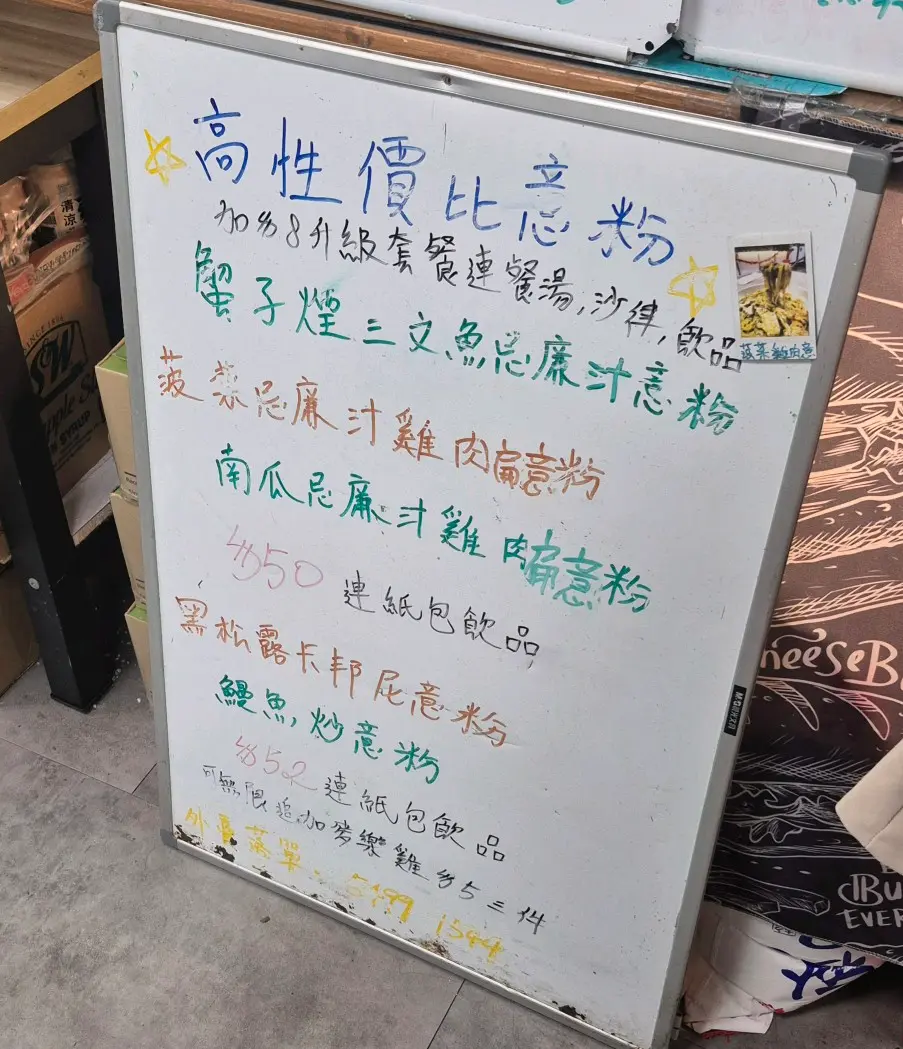 高性價比意粉
加多8升級套餐連餐湯,沙律,飲品
蟹子煙三文魚忌廉汁意粉
菠菜忌廉汁雞肉扁意粉
南瓜忌廉汁雞肉扁意粉
$50 連紙包飲品
黑松露卡邦尼意粉
鰻魚炒意粉
$52 連紙包飲品
可無限追加麥樂雞$5=件
外賣落單:5499 1544
清涼
SINCE 1896
S&W
SYRUP
M&G
CheeseB
EVER